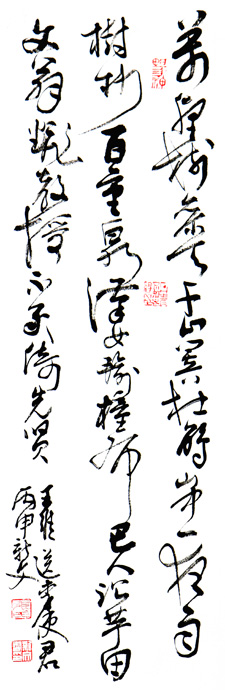 萬壑樹參天千山響杜鵑山中一夜雨
樹杪百重泉漢女輸橦布巴人訟芋田
文翁翻教授不敢倚先賢
王維送李使君
丙申